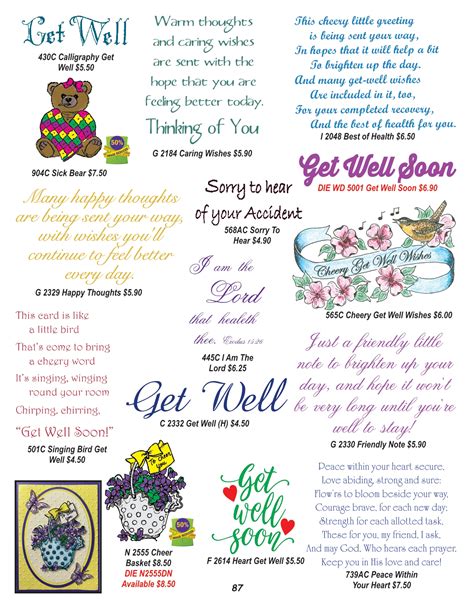 Get Well
430C Calligraphy Get
Well $5.50
50%
904C Sick Bear $7.50
Warm thoughts
and caring wishes
are sent with the
hope that you are
feeling better today.
Thinking of You
G 2184 Caring Wishes $5.90
This cheery little greeting
is being sent your way,
In hopes that it will help a bit
To brighten up the day.
And many get-well wishes
Are included in it, too,
For your completed recovery,
And the best of health for you.
I 2048 Best of Health $6.50
Get Well Soon
DIE WD 5001 Get Well Soon $6.90
Many happy thoughts
are being sent your way,
with wishes you'll
continue to feel better
every day.
G 2329 Happy Thoughts $5.90
Sorry to hear
of your Accident
568AC Sorry To
Hear $4.90
Cheery Get Well Wishes
565C Cheery Get Well Wishes $6.00
I am the
Lord
that healeth
thee. Exodus 15:26
445C I Am The
Lord $6.25
This card is like
a little bird
That's come to bring
a cheery word
It's singing, winging
round your room
Chirping, chirring,
"Get Well Soon!"
501C Singing Bird Get
Well $4.50
Get Well
C 2332 Get Well (H) $4.50
Just a friendly little
note to brighten up your
day, and hope it won't
be very long until you're
well to stay!
G 2330 Friendly Note $5.90
To cheer
you
50%
N 2555 Cheer
Basket $8.50
DIE N2555DN
Available $8.50
Get
well
soon
F 2614 Heart Get Well $5.50
Peace within your heart secure,
Love abiding, strong and sure:
Flow'rs to bloom beside your way,
Courage brave, for each new day;
Strength for each allotted task,
These for you, my friend, I ask,
And may God, Who hears each prayer,
Keep you in His love and care!
739AC Peace Within
Your Heart $7.50
87